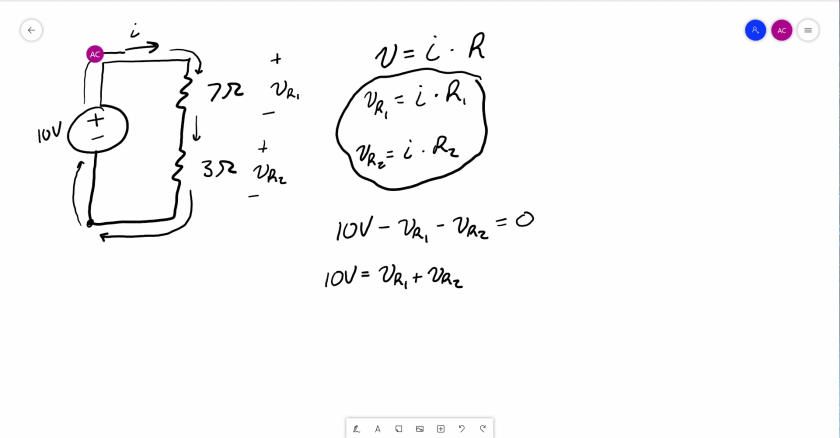 i
AC
AC
+
7Ω
v_R₁
−
10V
+
−
+
3Ω
v_R₂
−
v = i · R
v_R₁ = i · R₁
v_R₂ = i · R₂
10V − v_R₁ − v_R₂ = 0
10V = v_R₁ + v_R₂
A